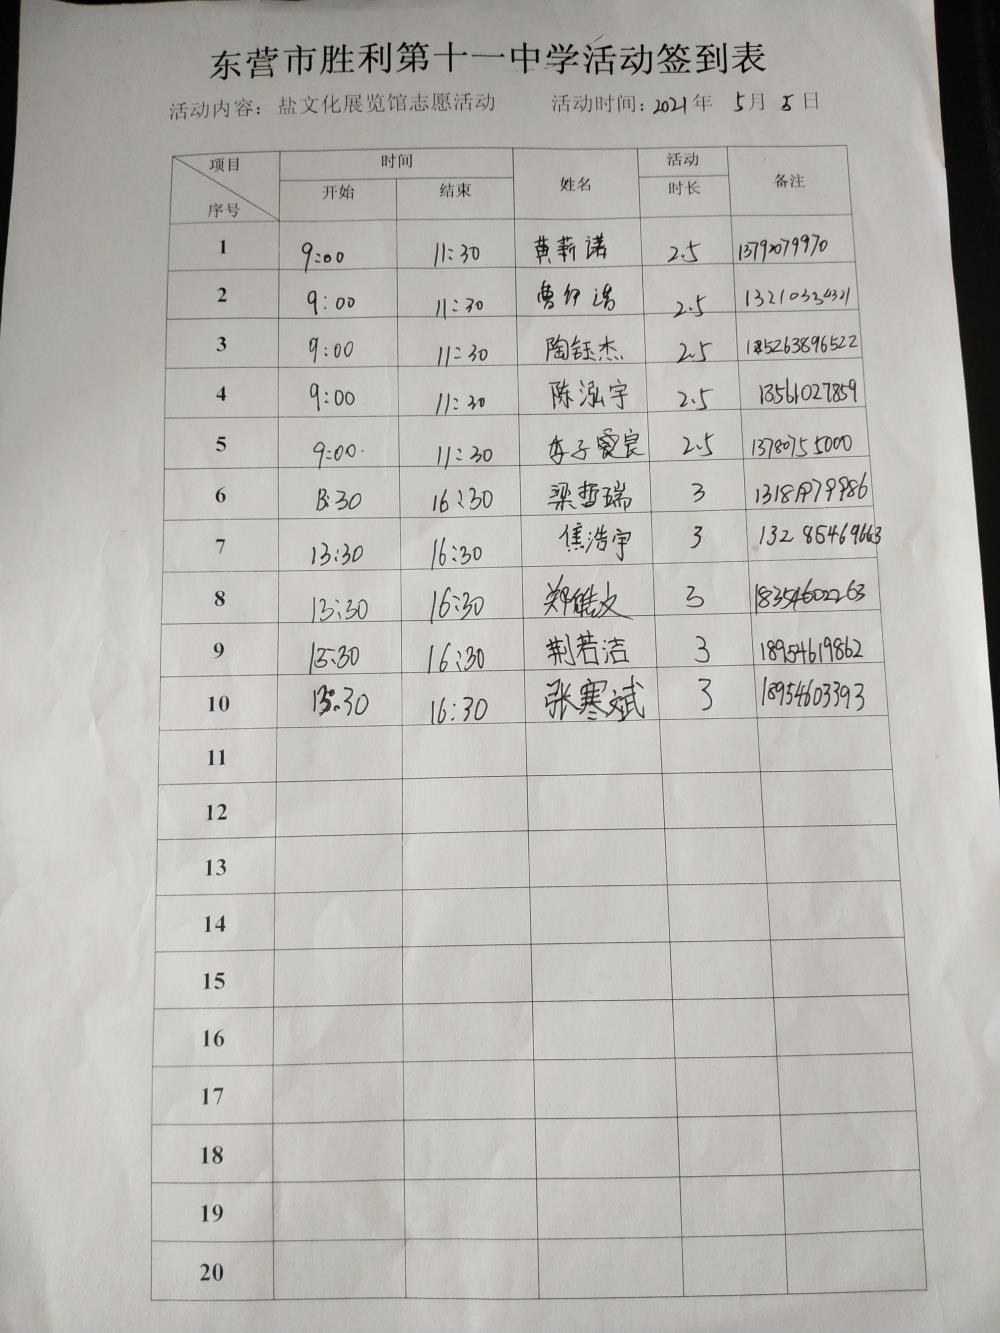 东营市胜利第十一中学活动签到表
活动内容：盐文化展览馆志愿活动 活动时间：2021年 5月 8日
项目 时间 姓名 活动 备注
序号 开始 结束 时长
1 9:00 11:30 黄薪诺 2.5
2 9:00 11:30 2.5 13210334321
3 9:00 11:30 陶钰杰 2.5 15263896522
4 9:00 11:30 陈泓宇 2.5 13561027859
5 9:00 11:30 2.5 13780755000
6 13:30 16:30 梁哲瑞 3
7 13:30 16:30 焦浩宇 3 13285469663
8 13:30 16:30 3 18354602263
9 13:30 16:30 荆若洁 3 18954619862
10 13:30 16:30 张寒斌 3 18954603393
11
12
13
14
15
16
17
18
19
20